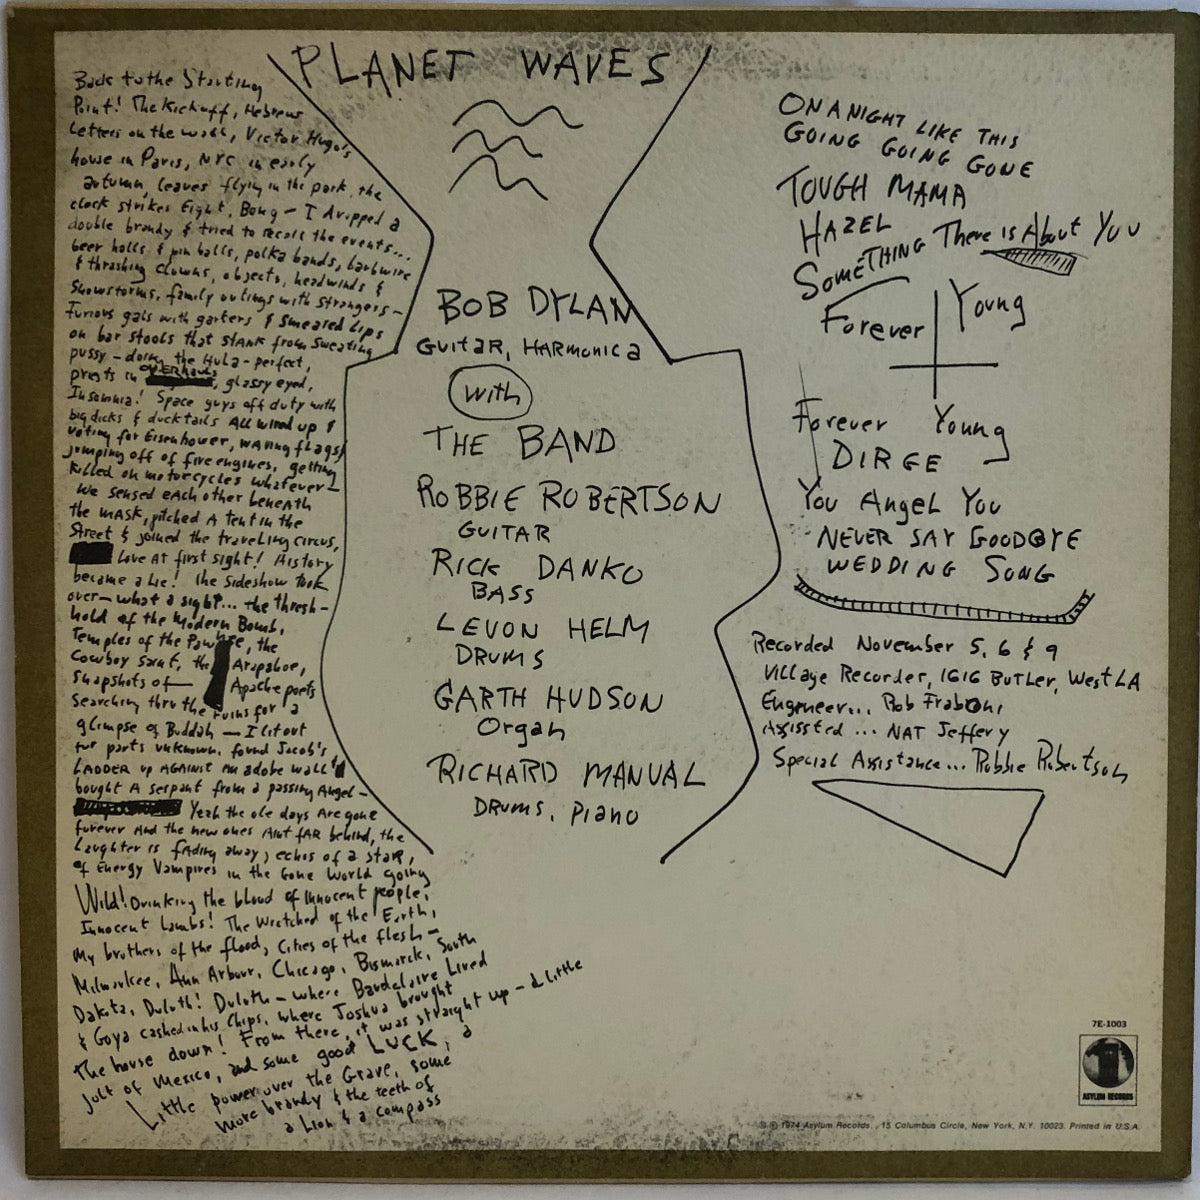 PLANET WAVES
Back to the Starting
Point! The Kickoff, Hebrew
Letters on the wall, Victor Hugo's
house in Paris, NYC in early
autumn, leaves flying in the park, the
clock strikes Eight, Bong - I dropped a
double brandy & tried to recall the events...
beer halls & pin balls, polka bands, barbwire
& thrashing clowns, objects, headwinds &
Snowstorms, family outings with strangers -
Furious gals with garters & smeared Lips
on bar stools that stank from sweating
pussy - doing the Hula - perfect,
priests in OVERHAULS, glassy eyed,
Insomnia! Space guys off duty with
big dicks & ducktails All wired up &
voting for Eisenhower, waving flags &
jumping off of fire engines, getting
killed on motorcycles whatever -
We sensed each other beneath
the mask, pitched a tent in the
Street & joined the traveling circus,
Love at first sight! History
became a Lie! The sideshow took
over - what a sight... the thresh-
hold of the Modern Bomb,
Temples of the Pawnee, the
Cowboy saint, the Arapahoe,
snapshots of - Apache poets
searching thru the ruins for a
glimpse of Buddah - I lit out
for parts unknown, found Jacob's
LADDER up AGAINST an adobe wall &
bought A serpant from a passing Angel -
Yeah the ole days Are gone
forever And the new ones Aint fAR behind, the
Laughter is fAding away, echos of a staR,
of Energy Vampires in the Gone World going
Wild! Drinking the blood of innocent people,
Innocent Lambs! The Wretched of the Earth,
My brothers of the flood, Cities of the flesh -
Milwaukee, Ann Arbour, Chicago, Bismarck, South
Dakota, Duluth! Duluth - where Baudelaire Lived
& Goya cashed in his Chips, where Joshua brought
The house down! From there, it was straight up - a Little
jolt of Mexico, and some good LUCK, a
Little power over the Grave, some
more brandy & the teeth of
a Lion & a compass
BOB DYLAN
GUITAR, HARMONICA
With
THE BAND
ROBBIE ROBERTSON
GUITAR
RICK DANKO
BASS
LEVON HELM
DRUMS
GARTH HUDSON
Organ
RICHARD MANUAL
DRUMS, Piano
ON A NIGHT LIKE THIS
GOING GOING GONE
TOUGH MAMA
HAZEL
SOMETHING There is About You
Forever Young
Forever Young
DIRGE
You Angel You
NEVER SAY GOODBYE
WEDDING SONG
Recorded November 5, 6 & 9
Village Recorder, 1616 BUTLER, West LA
Engineer... Rob Fraboni
Assissted ... NAT Jeffery
Special Assistance... Robbie Robertson
7E-1003
ASYLUM RECORDS
℗ © 1974 Asylum Records, 15 Columbus Circle, New York, N.Y. 10023. Printed in U.S.A.